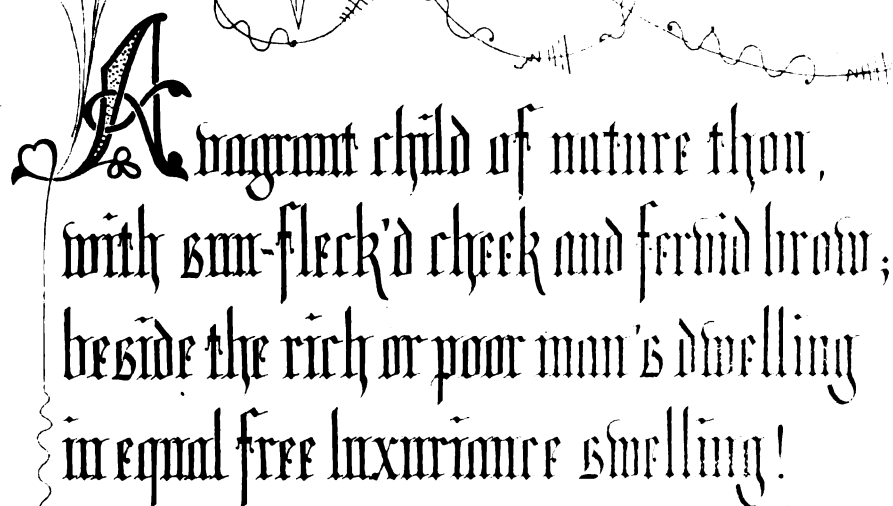 A vagrant child of nature thou,
with sun-fleck'd cheek and fervid brow;
beside the rich or poor man's dwelling
in equal free luxuriance swelling!